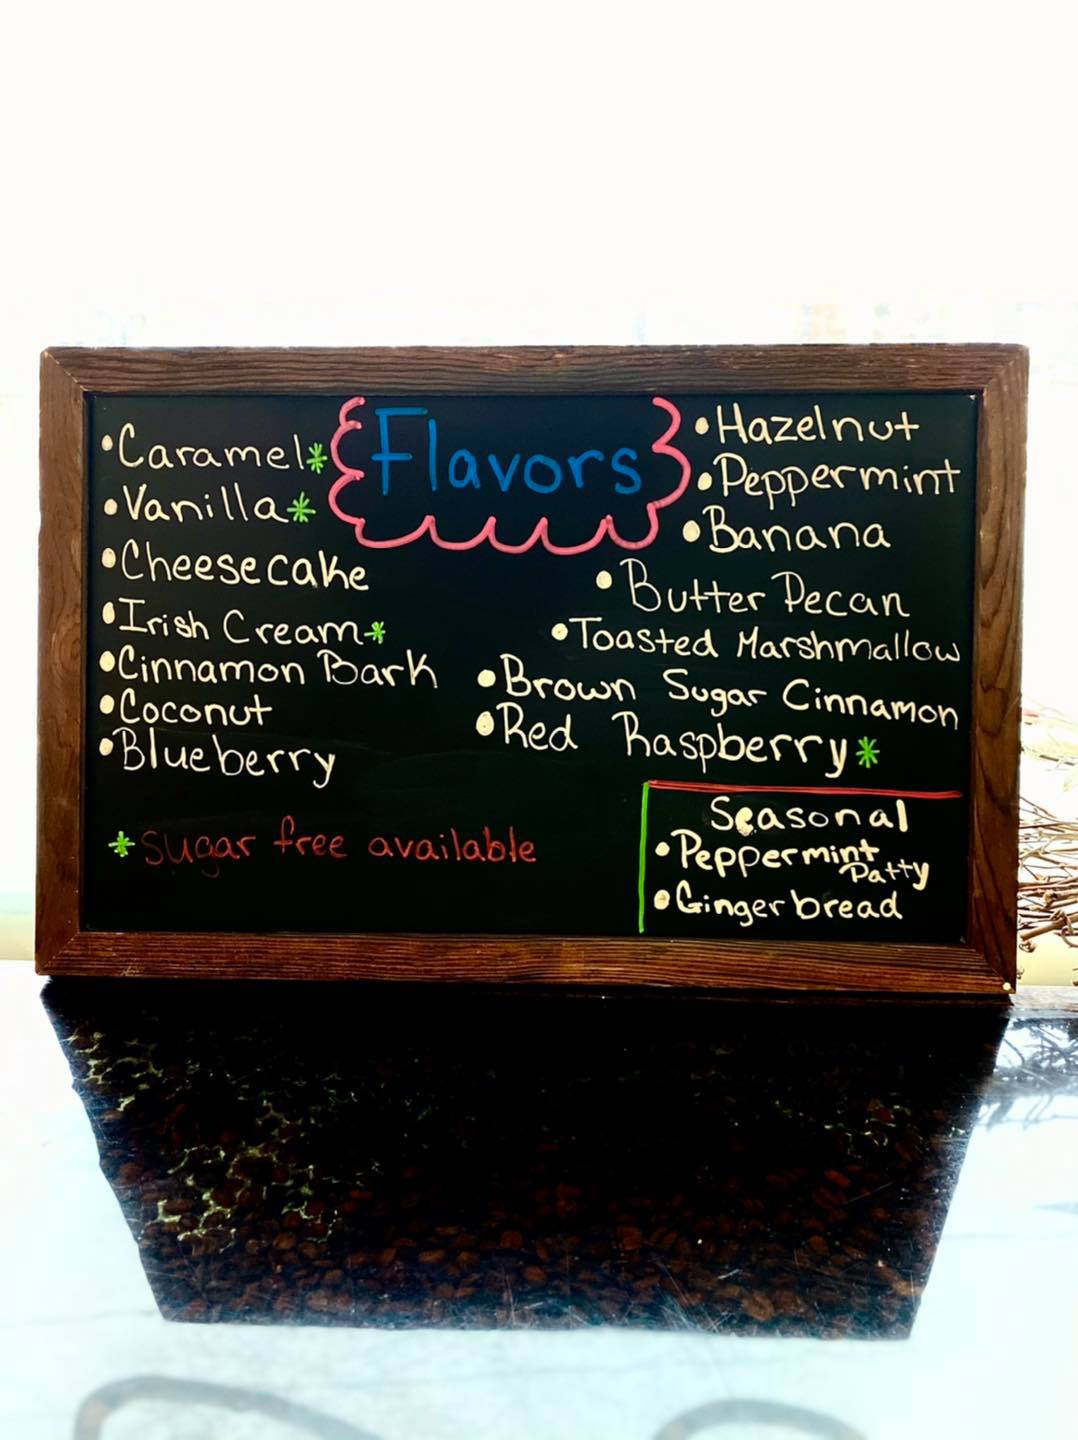 Flavors
•Caramel*
•Vanilla*
•Cheesecake
•Irish Cream*
•Cinnamon Bark
•Coconut
•Blueberry
*Sugar free available
•Hazelnut
•Peppermint
•Banana
•Butter Pecan
•Toasted Marshmallow
•Brown Sugar Cinnamon
•Red Raspberry*
Seasonal
•Peppermint Patty
•Gingerbread